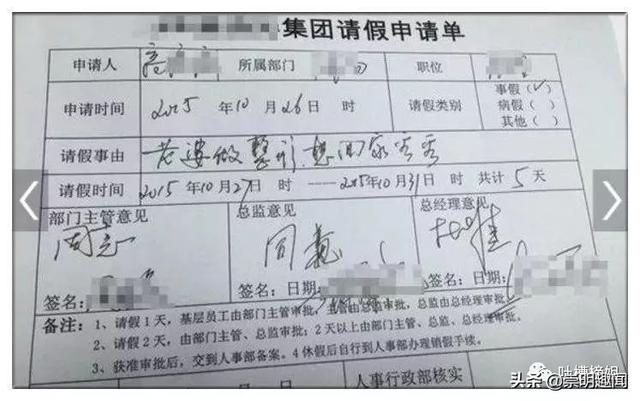 集团请假申请单
申请人 高 所属部门 职位
申请时间 2015 年 10 月 26 日 时 请假类别 事假（√）
病假（ ）
其他（ ）
请假事由 老婆做整形.想回家看看
请假时间 2015年10月27日 时 ——2015年10月31日 时 共计 5 天
部门主管意见 总监意见 总经理意见
同意 同意 批准
签名： 签名： 日期： 签名： 日期：
备注： 1、请假 1 天，基层员工由部门主管审批，主管由总监审批，总监由总经理审批。
2、请假 2 天，由部门主管、总监审批；2 天以上由部门主管、总监、总经理审批。
3、获准审批后，交到人事部备案。4 休假后自行到人事部办理销假手续。
人事行政部核实
吐槽榜姐
头条@崇明趣闻